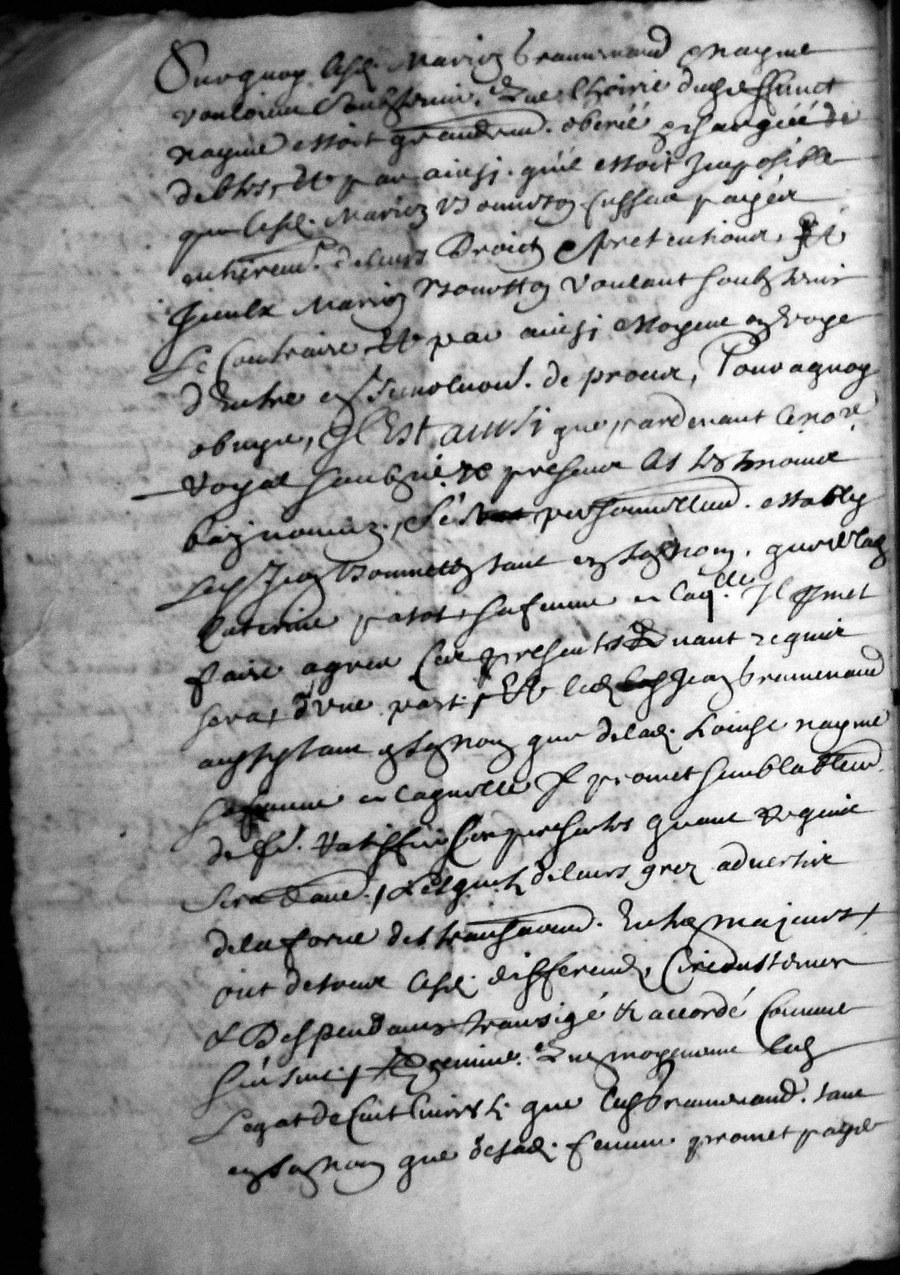 Surquoy lesd. mariez bramerand & nayme
vouloient soubstenir. que l'hoirie dud. deffunct
nayme estoit grandem. oberée & chargéé de
debtes, et par ainsi. qu'il estoit Impossible
que lesd. mariez bonneton fussent payéz
entierem. de leurs droictz & pretentions, Et
Iceulx mariez bonneton voulant soubstenir
Le Contraire, Et par ainsi estoyent en voye
d'Entrer en Inuolution. de proces, Pour aquoy
obuyer, Il Est ainsi que, pardeuant le no.re
royal soubzné. & presents les tesmoins
bas nommez, se sont personnellem. estably
Led. Jean bonneton tant en son nom. que de lad.
Caterine patot sa femme a laq.lle Il promet
faire agreer Ces presentes quant requis
sera, d'Vne part, Et led. Jean bramerand
aussy tant en son nom que de lad. Louise nayme
sa femme a laquelle Il promet semblablem.
de fe. ratiffier Ces presentes quant requis
sera d'autre, Lesquelz de leurs grez aduertis
de la force des transactions. Entre majeurs,
ont de tous lesd. differendz, Circonstances
& Despendances transigé & accordé Comme
s'ensuit, premierem. que moyennant led.
Legat de Cent liures tz. que led. bramerand. tant
en son nom que de sad. femme promet payer